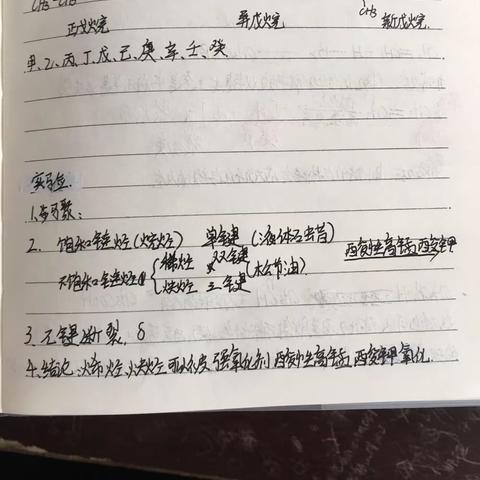 CH₃-CH₃
CH₃
正戊烷 异戊烷 新戊烷
甲、乙、丙、丁、戊、己、庚、辛、壬、癸
实验.
2. 饱和链烃(烷烃) 单键(液体石蜡)
酸性高锰酸钾
不饱和链烃 { 烯烃 双键
炔烃 三键 (松节油)
3. 元键断裂, δ
4. 结论: 烯烃、炔烃可以被强氧化剂酸性高锰酸钾氧化.